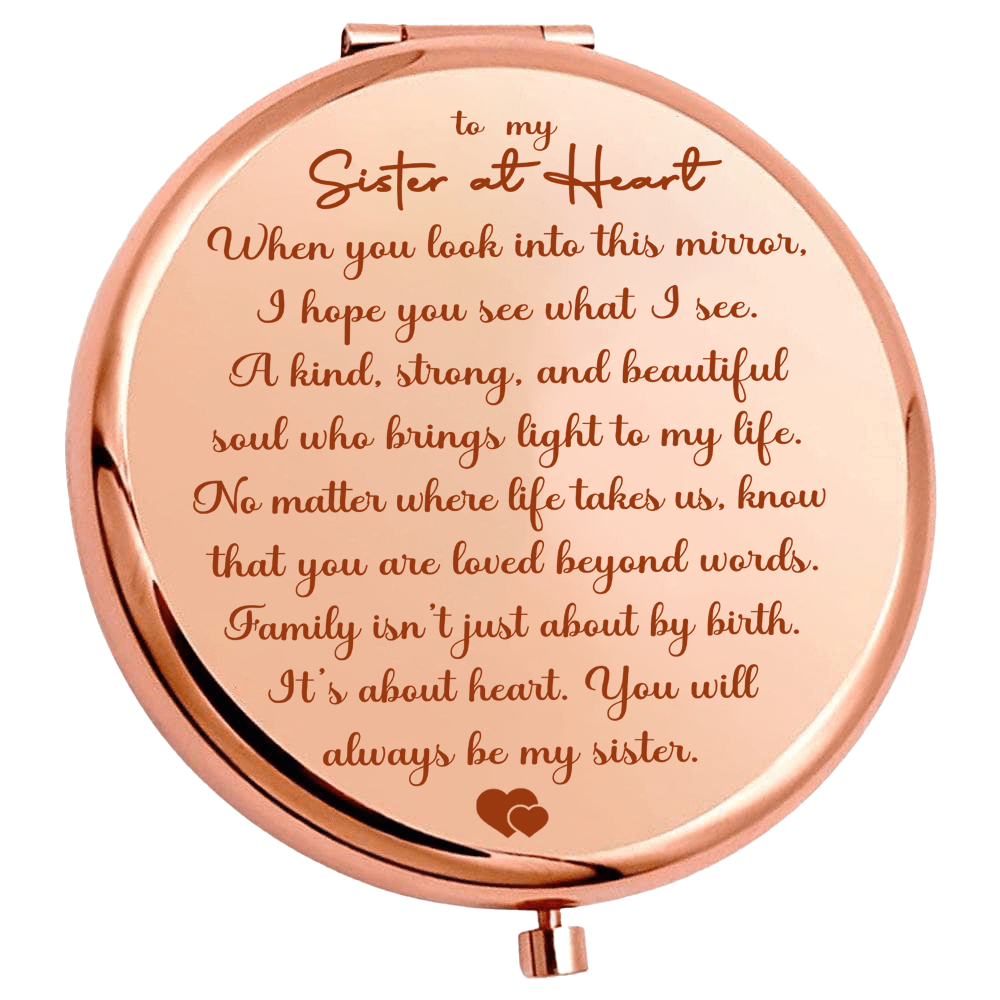 to my
Sister at Heart
When you look into this mirror,
I hope you see what I see.
A kind, strong, and beautiful
soul who brings light to my life.
No matter where life takes us, know
that you are loved beyond words.
Family isn't just about by birth.
It's about heart. You will
always be my sister.